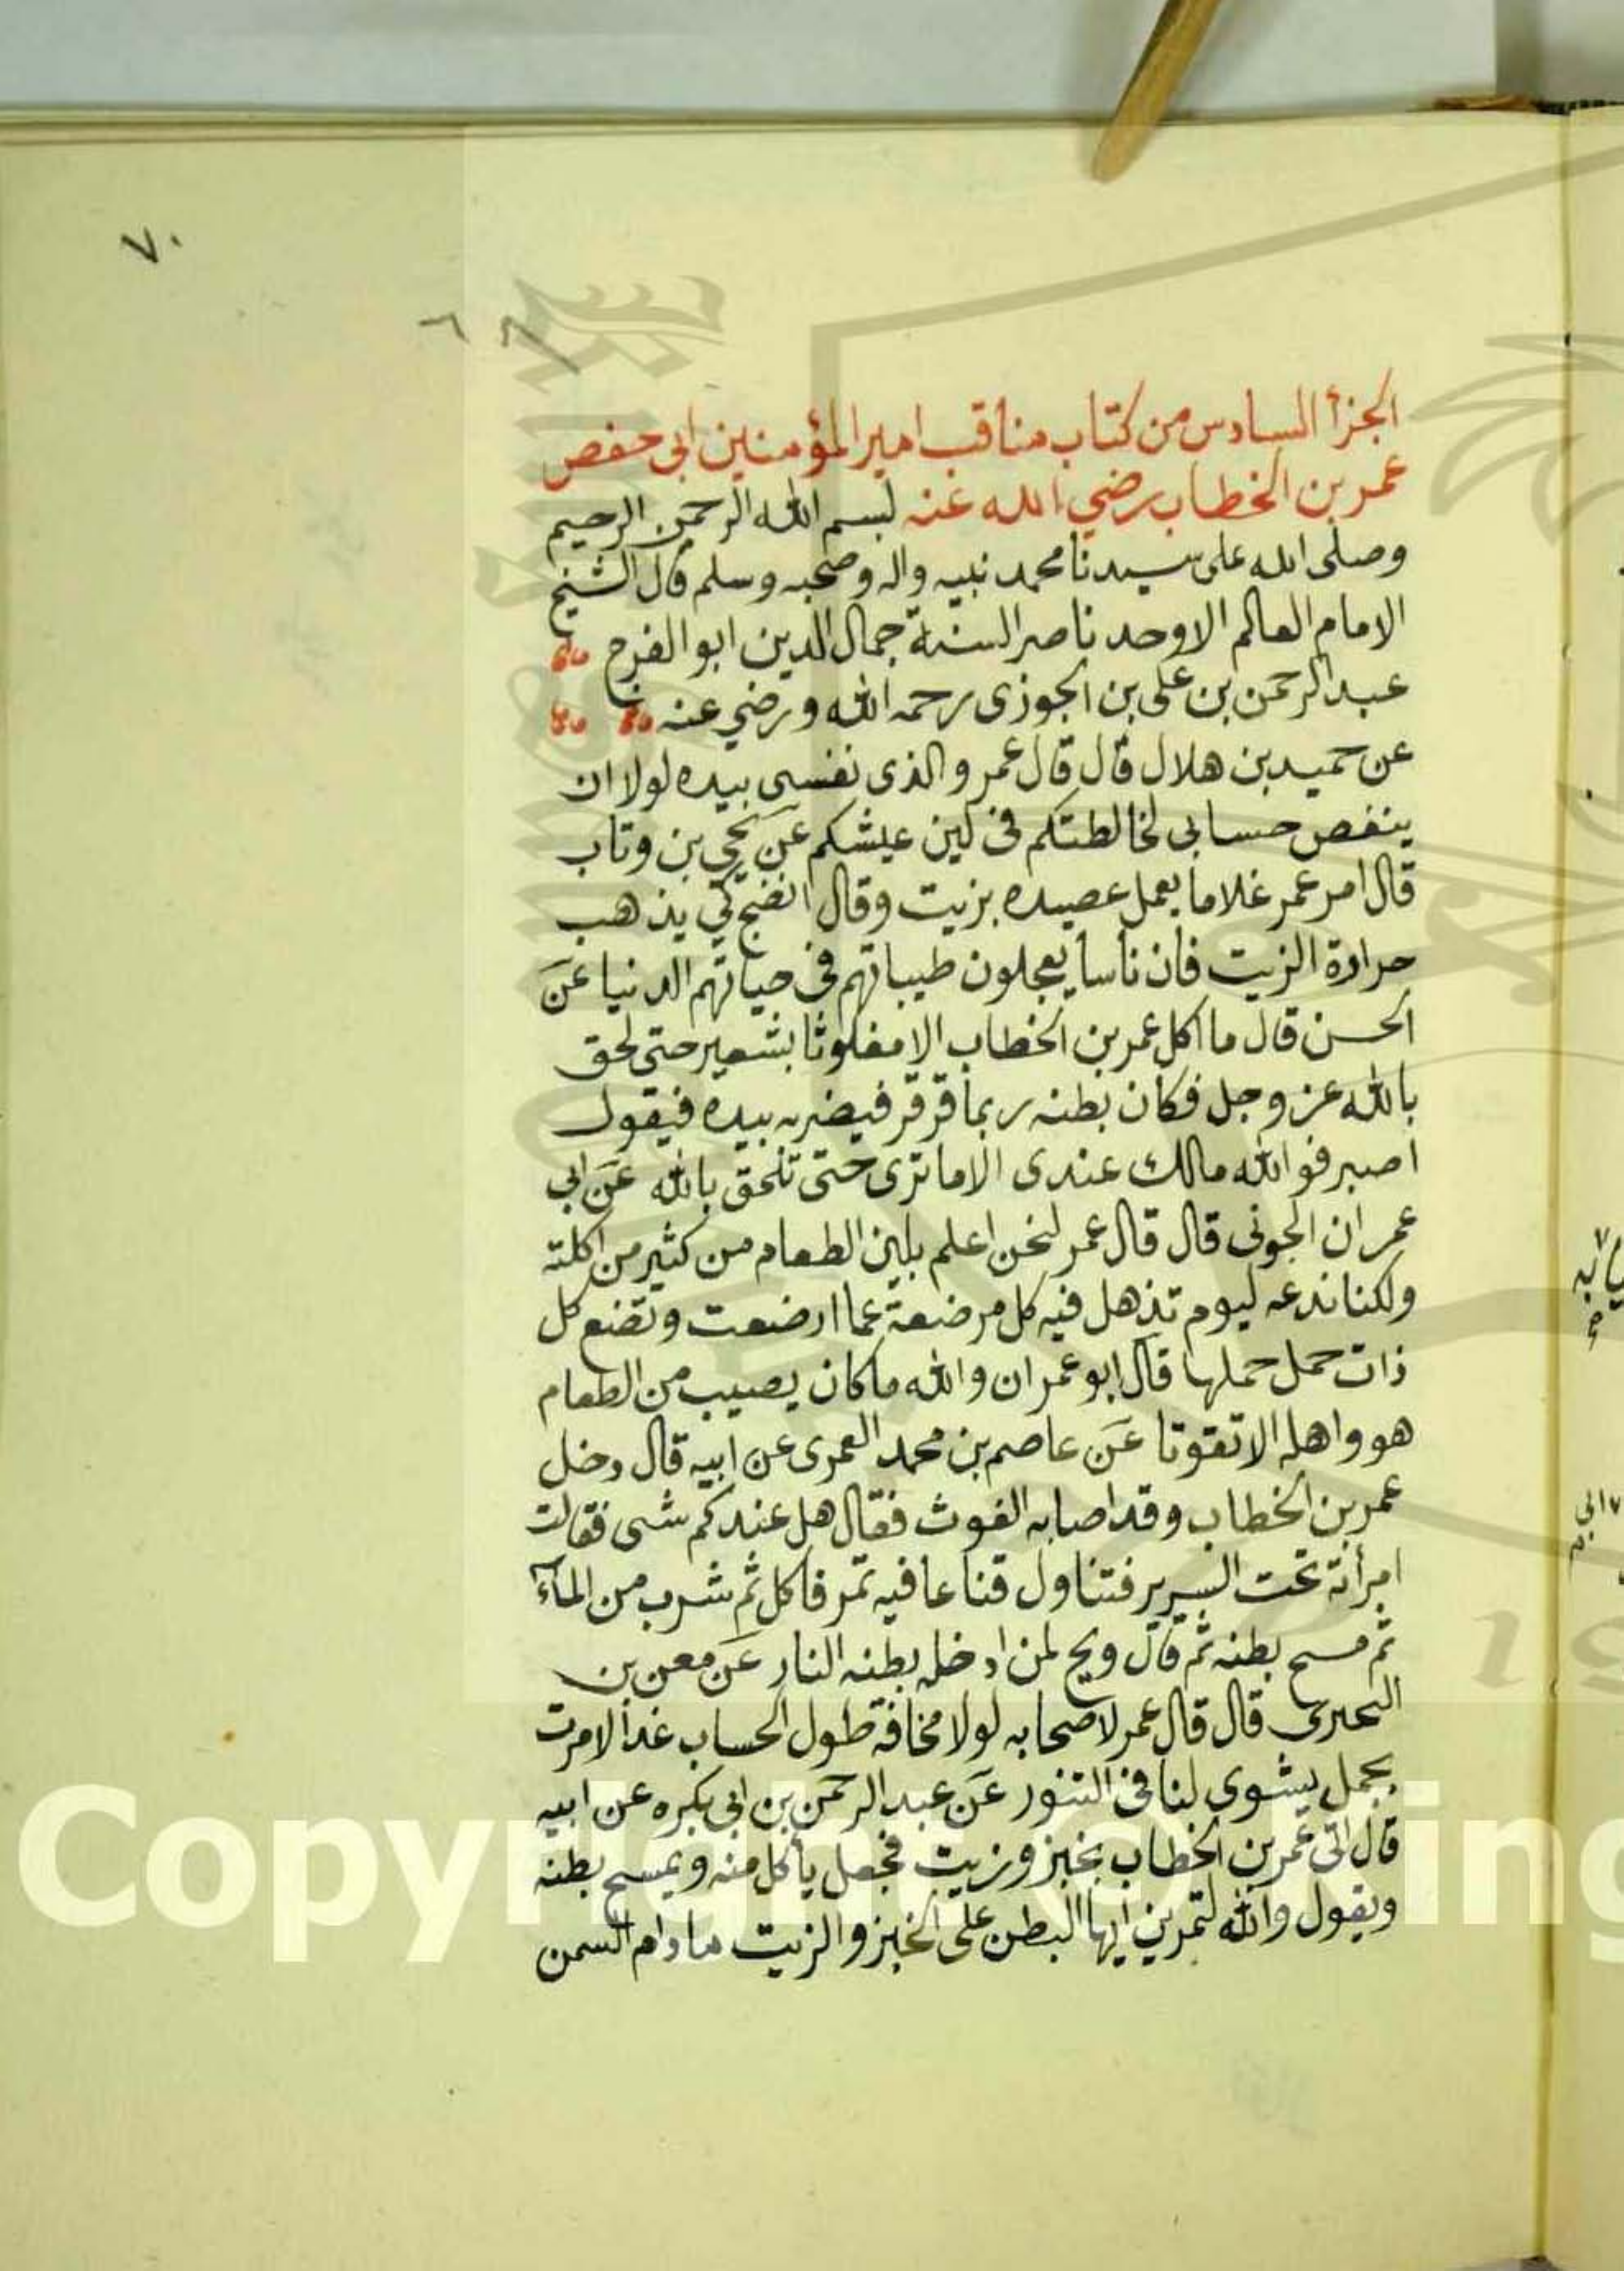 ٧٠
٦٨
الجزأ السادس من كتاب مناقب امير المؤمنين ابى حفص
عمر بن الخطاب رضي الله عنه بسم الله الرحمن الرحيم
وصلى الله على سيدنا محمد نبيه واله وصحبه وسلم قال الشيخ
الامام العالم الاوحد ناصر السنة جمال الدين ابو الفرج
عبد الرحمن بن على بن الجوزى رحمه الله ورضي عنه
عن حميد بن هلال قال قال عمر والذى نفسى بيده لولا ان
ينغص حسابى لخالطتكم فى لين عيشكم عن يحيى بن وتاب
قال امر عمر غلاما يعمل عصيده بزيت وقال انضج كي يذهب
حرارة الزيت فان ناسا يعجلون طيباتهم فى حياتهم الدنيا عن
الحسن قال ما اكل عمر بن الخطاب الا مغلوثا بشعير حتى لحق
بالله عز وجل فكان بطنه ربما قرقر فيضربه بيده فيقول
اصبر فوالله مالك عندى الا ما ترى حتى تلحق بالله عن ابي
عمران الجونى قال قال عمر لنحن اعلم بلين الطعام من كثير من اكلته
ولكنا ندعه ليوم تذهل فيه كل مرضعة عما ارضعت وتضع كل
ذات حمل حملها قال ابو عمران والله ما كان يصيب من الطعام
هو واهله الا تقوتا عن عاصم بن محمد العمرى عن ابيه قال دخل
عمر بن الخطاب وقد اصابه الغوث فقال هل عندكم شى فقالت
امرأته تحت السرير فتناول قناعا فيه تمر فاكل ثم شرب من المآء
ثم مسح بطنه ثم قال ويح لمن ادخله بطنه النار عن معن بن
البحترى قال قال عمر لاصحابه لولا مخافة طول الحساب غدا لامرت
بجمل يشوى لنا فى التنور عن عبد الرحمن بن ابى بكره عن ابيه
قال اتى عمر بن الخطاب بخبز وزيت فجعل يأكل منه ويمسح بطنه
ويقول والله لتمرين ايها البطن على الخبز والزيت ما دام السمن
Copyright © King